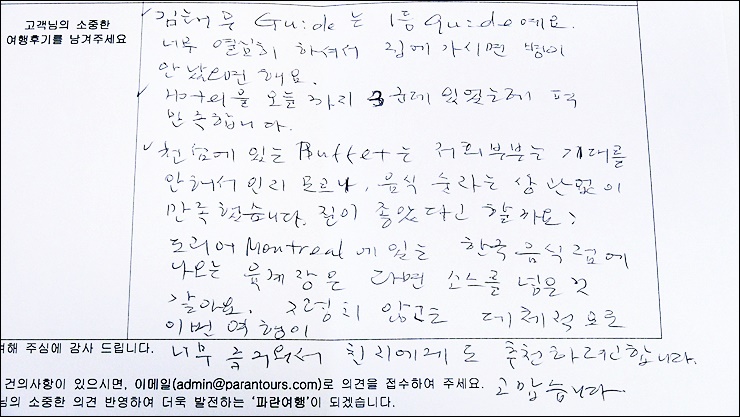 고객님의 소중한
여행후기를 남겨주세요
✓ 김 문 Guide는 1등 Guide예요.
너무 열심히 하셔서 집에 가시면 병이
안 났으면 해요.
✓ Hotel을 오늘 까지 3군데 있었는데 퍽
만족합니다.
✓ 천섬에 있는 Buffet는 저희부부는 기대를
안해서 인지 모르나, 음식 순라는 상관없이
만족했습니다. 질이 좋았다고 할까요?
도리어 Montreal에 있는 한국 음식점에
나오는 육계장은 라면 소스를 넣은 것
같아요. 그렇치 않고는 대체적으로
이번 여행이
너무 즐거워서 친지에게도 추천하려 합니다.
고맙습니다
해 주심에 감사 드립니다.
건의사항이 있으시면, 이메일(admin@parantours.com)로 의견을 접수하여 주세요.
님의 소중한 의견 반영하여 더욱 발전하는 '파란여행'이 되겠습니다.